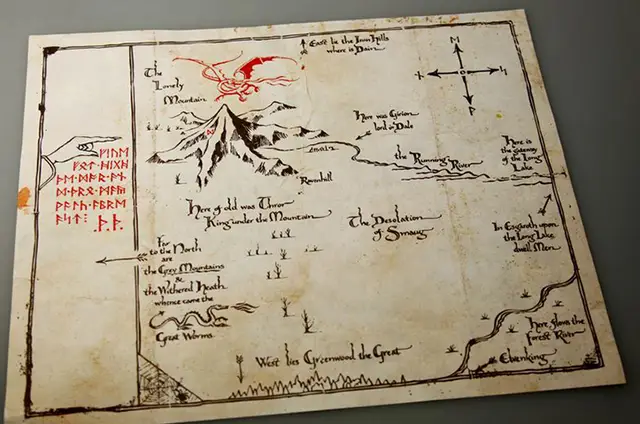 East lie the Iron Hills
where is Dain
The
Lonely
Mountain
Here was Girion
lord in Dale
the Running River
Here is
the gateway
of the Long
Lake
Ravenhill
Here of old was Thror
King under the Mountain
The Desolation
of Smaug
In Esgaroth upon
the Long Lake
dwell Men
Far
to the North
are
the Grey Mountains
&
the Withered Heath
whence came the
Great Worms
West lies Greenwood the Great
Here flows the
Forest River
Elvenking